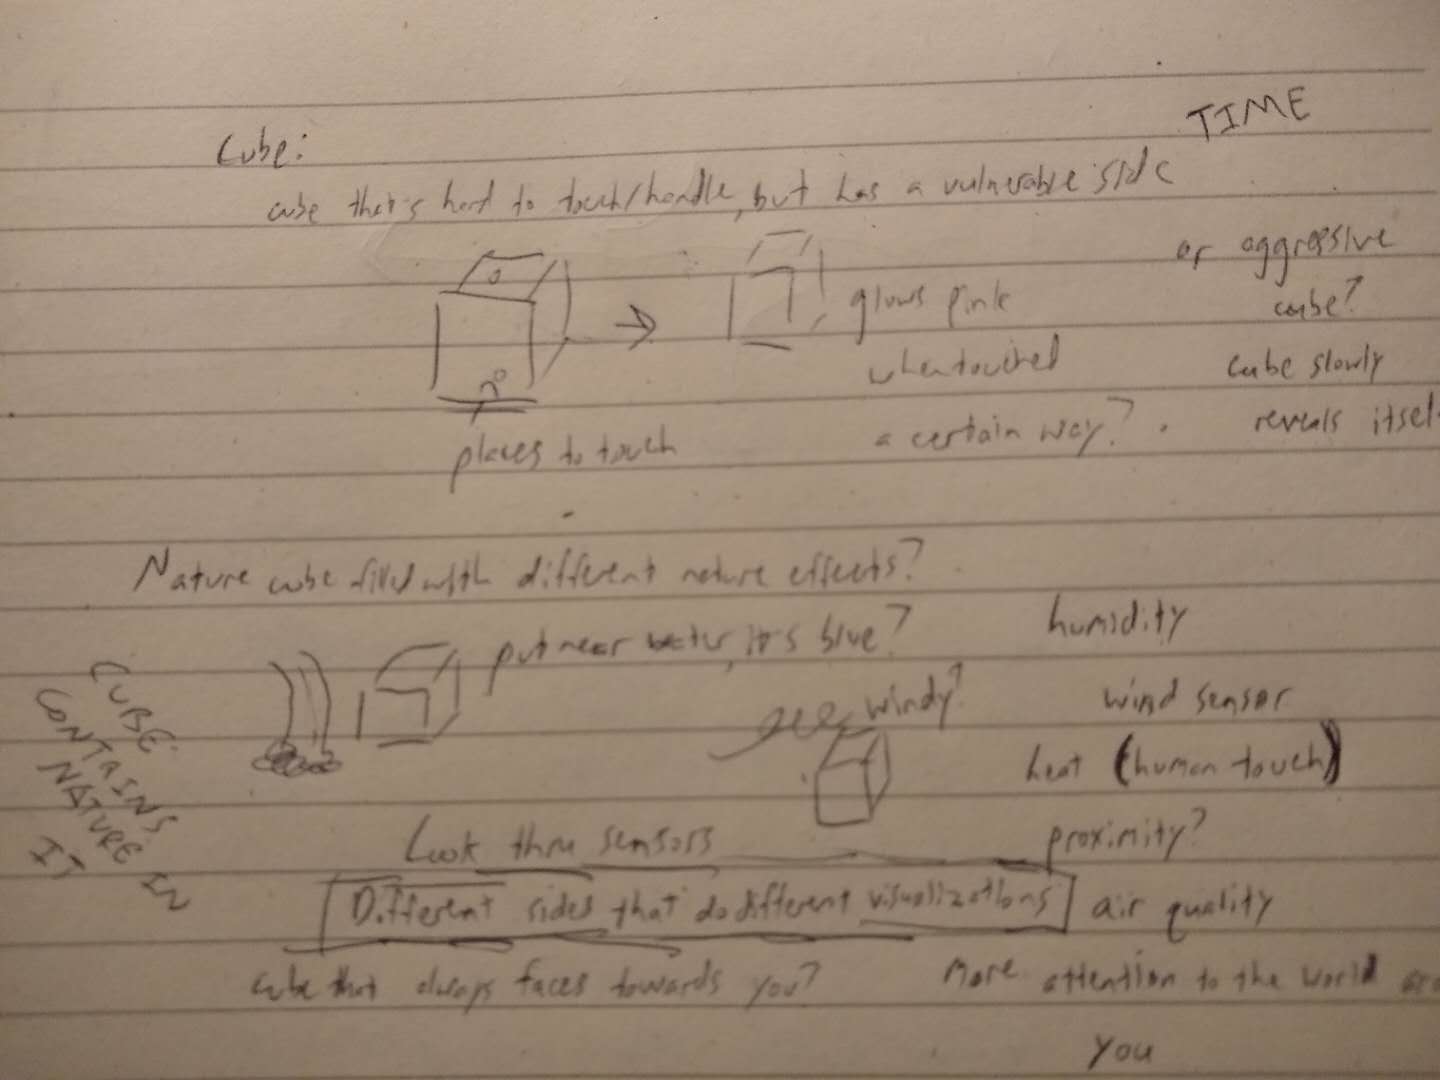 TIME
Cube:
cube that's hard to touch/handle, but has a vulnerable side
or aggressive
cube?
cube slowly
reveals itsel
glows pink
when touched
a certain way?
places to touch
Nature cube filled with different nature effects?
put near water, it's blue?
humidity
windy?
wind sensor
heat (human touch)
proximity?
air quality
CUBE
CONTAINS
NATURE IN
IT
Look thru sensors
Different sides that do different visualizations
cube that always faces towards you?
more attention to the world
you